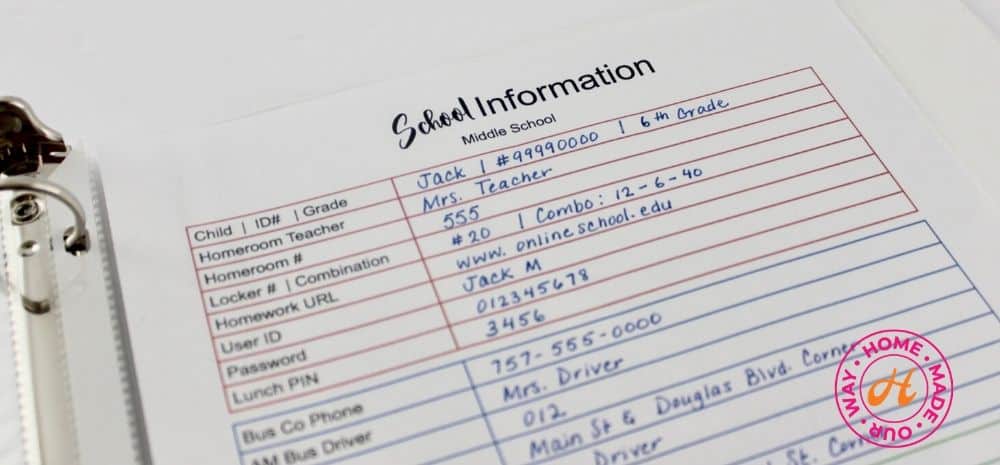 School Information
Middle School
Child | ID# | Grade Jack | #99990000 | 6th Grade
Homeroom Teacher Mrs. Teacher
Homeroom # 555
Locker # | Combination #20 | Combo: 12-6-40
Homework URL www.onlineschool.edu
User ID Jack M
Password 012345678
Lunch PIN 3456
Bus Co Phone 757-555-0000
AM Bus Driver Mrs. Driver
012
Main St & Douglas Blvd. Corner
Driver
St. Corner
HOME · MADE · OUR · WAY
H